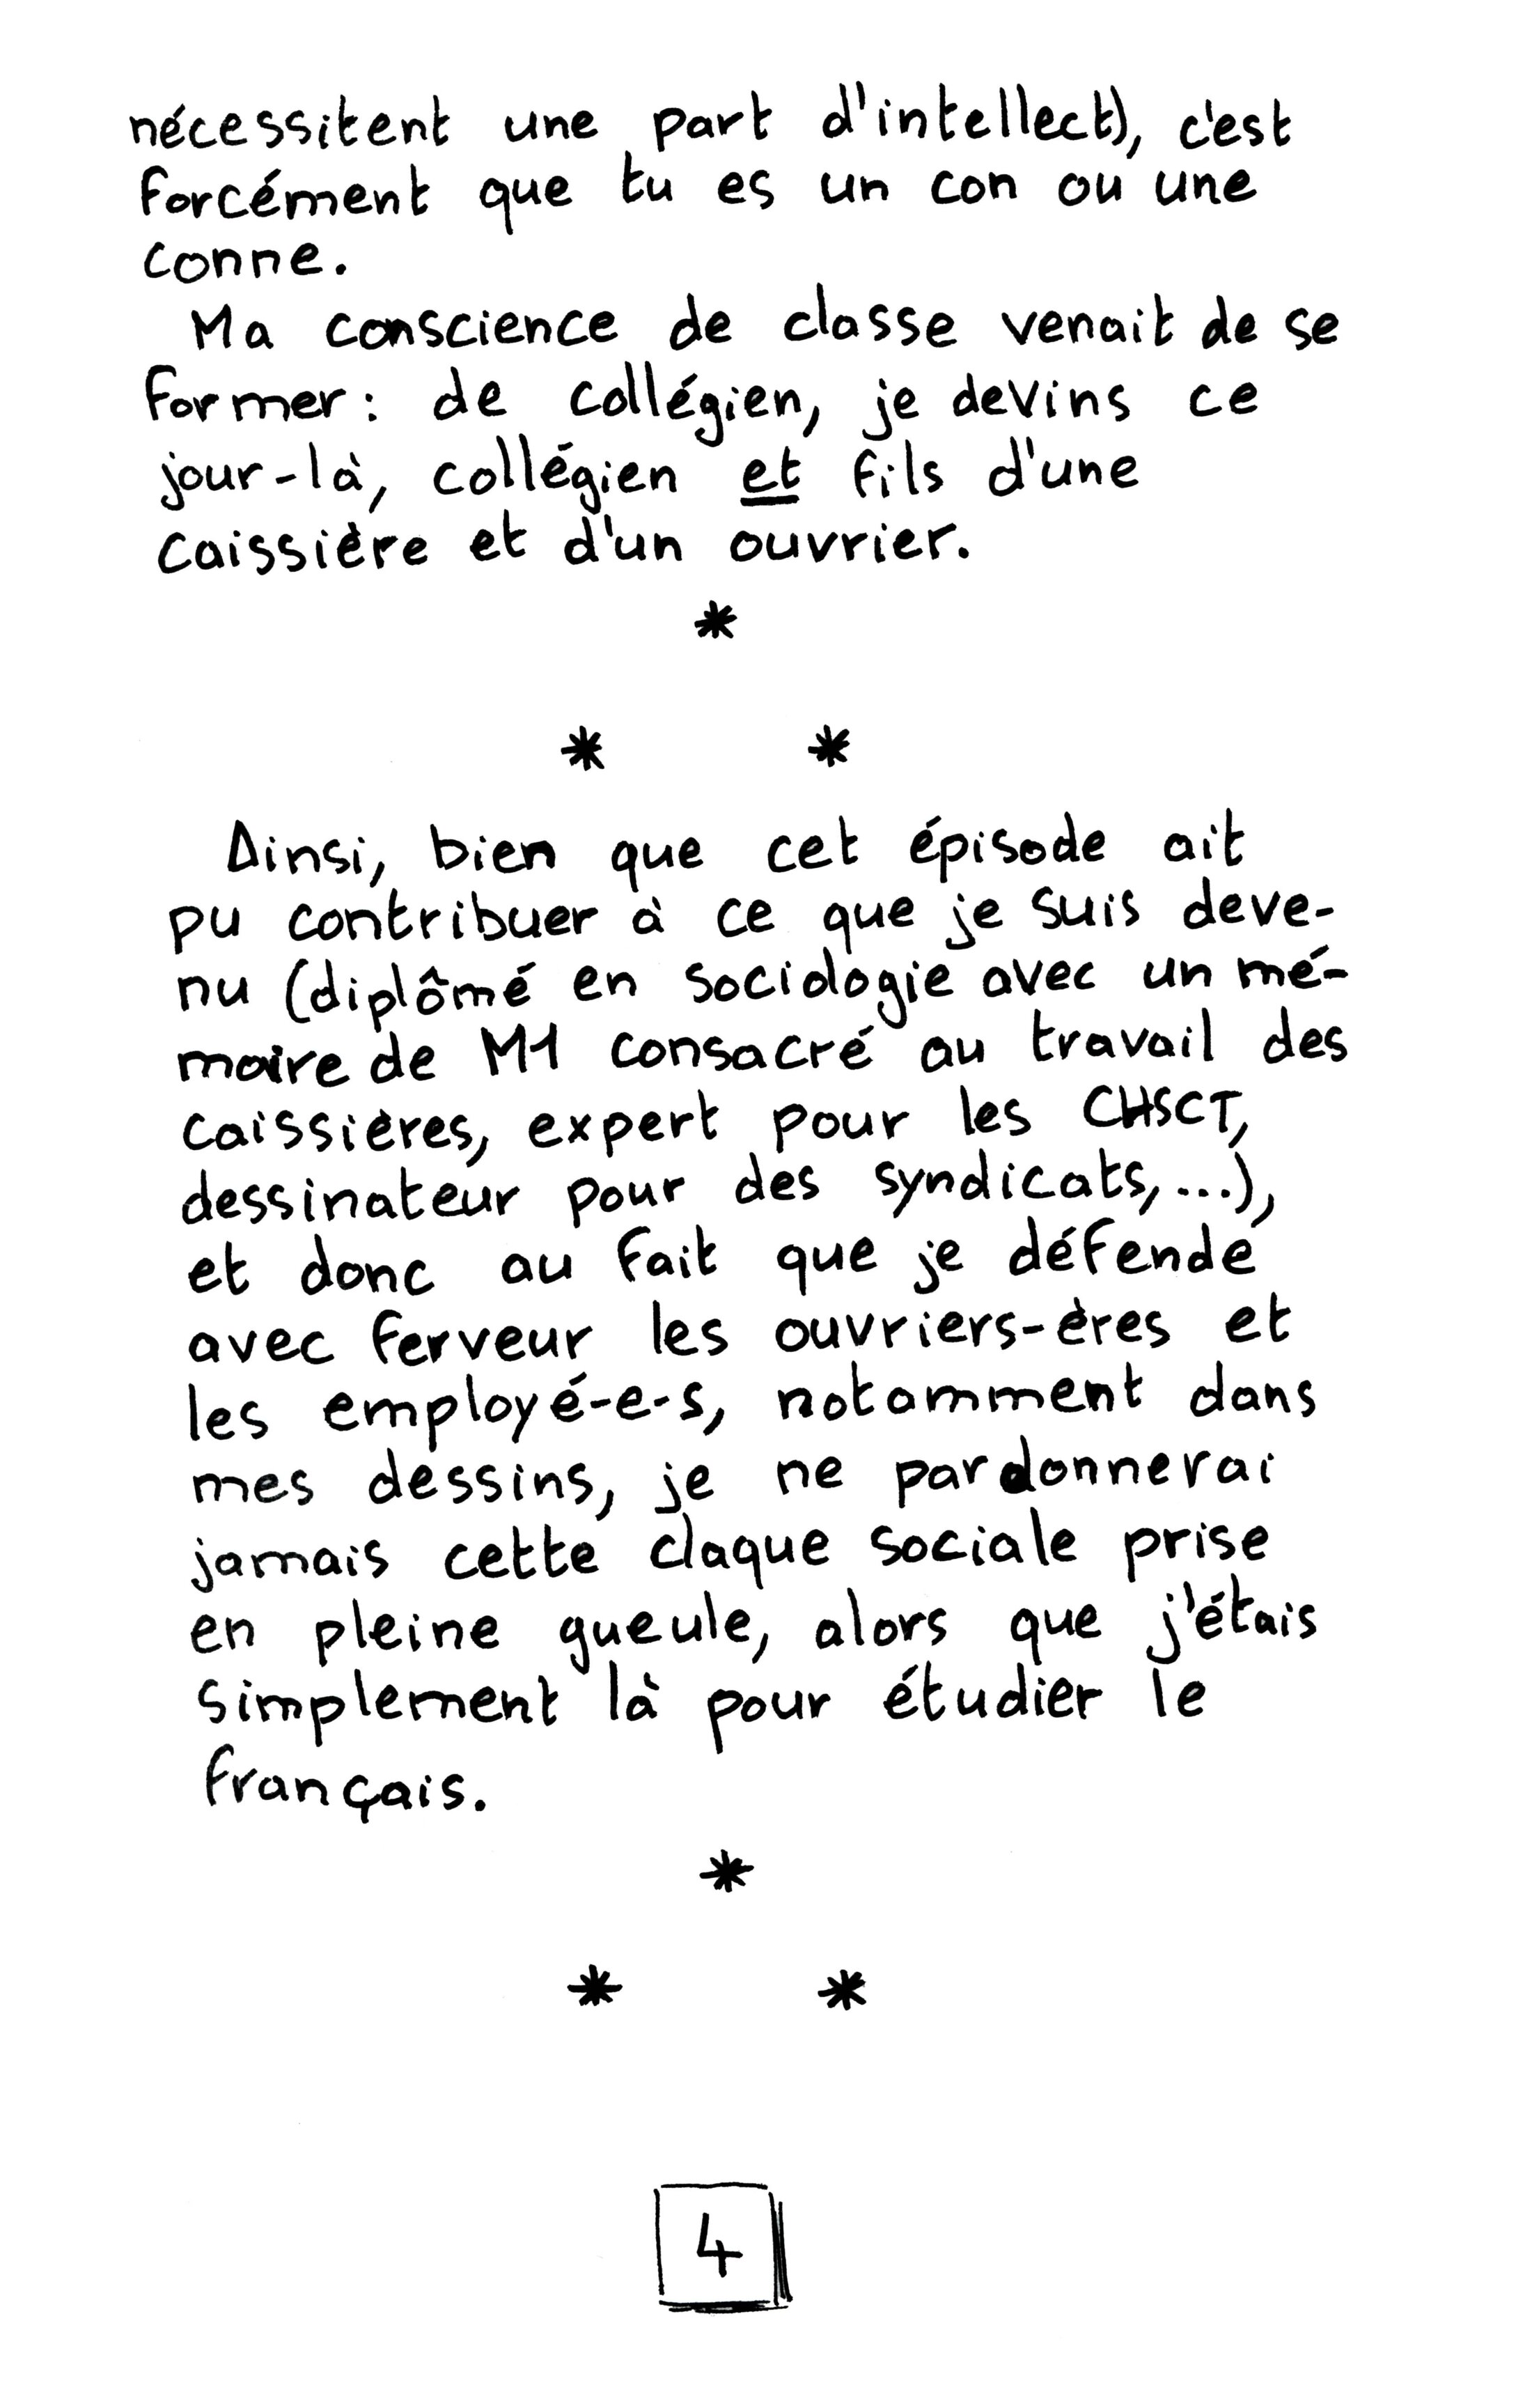 nécessitent une part d'intellect), c'est
forcément que tu es un con ou une
conne.
Ma conscience de classe venait de se
former : de collégien, je devins ce
jour-là, collégien et fils d'une
caissière et d'un ouvrier.
*
* *
Ainsi, bien que cet épisode ait
pu contribuer à ce que je suis deve-
nu (diplômé en sociologie avec un mé-
moire de M1 consacré au travail des
caissières, expert pour les CHSCT,
dessinateur pour des syndicats,...),
et donc au fait que je défende
avec ferveur les ouvriers-ères et
les employé-e-s, notamment dans
mes dessins, je ne pardonnerai
jamais cette claque sociale prise
en pleine gueule, alors que j'étais
simplement là pour étudier le
français.
*
* *
4